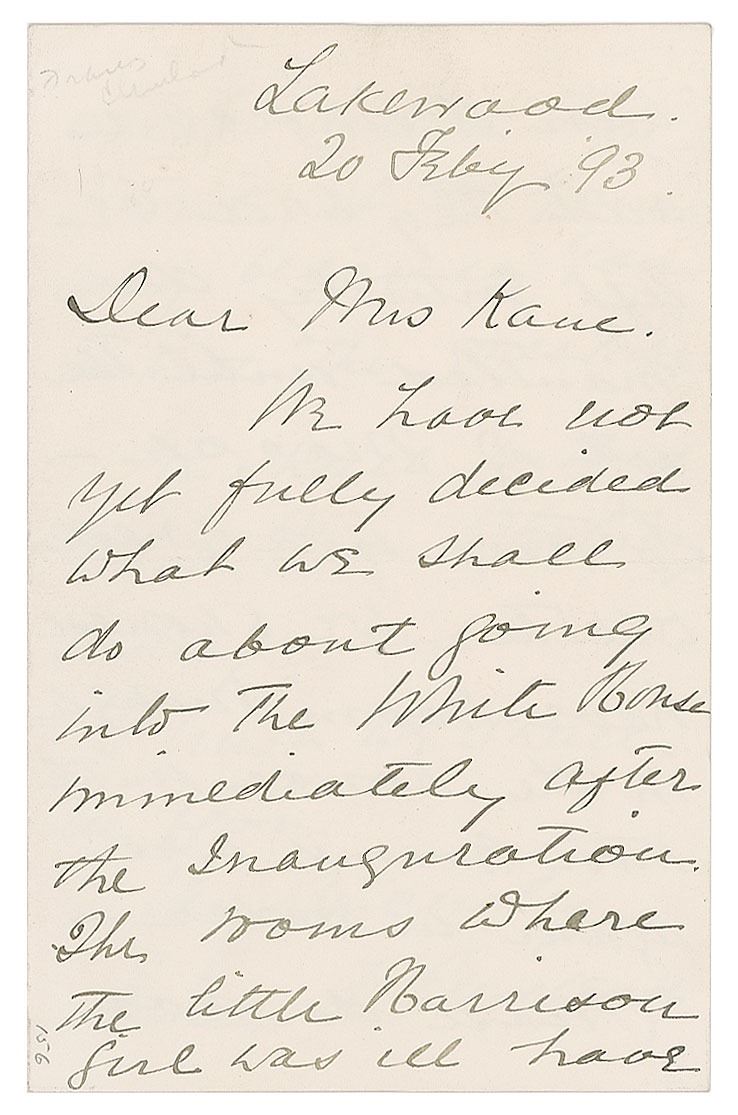 Frances
Cleveland
Lakewood.
20 Feby '93.
Dear Mrs Kane.
We have not
yet fully decided
what we shall
do about going
into the White House
immediately after
the Inauguration.
The rooms where
the little Harrison
girl was ill have
156